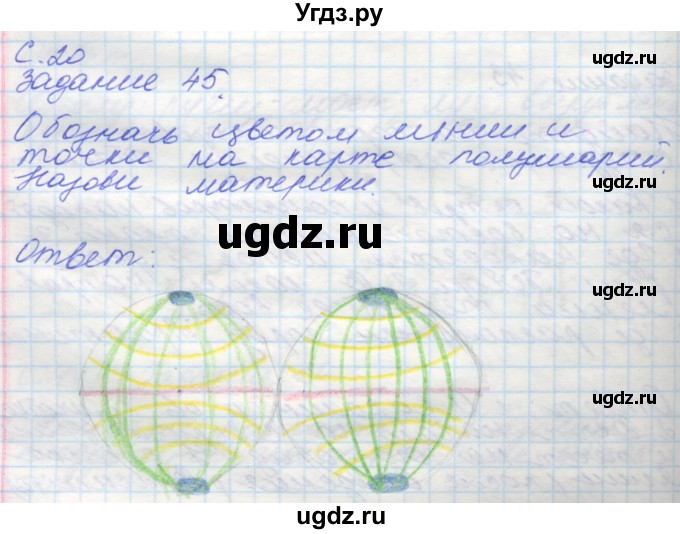 Угдз.ру
ugdz.ru
С. 20
Задание 45.
Обозначь цветом линии и
точки на карте полушарий.
Назови материки.
ugdz.ru
ugdz.ru
Ответ:
ugdz.ru
ugdz.ru
ugdz.ru
ugdz.ru